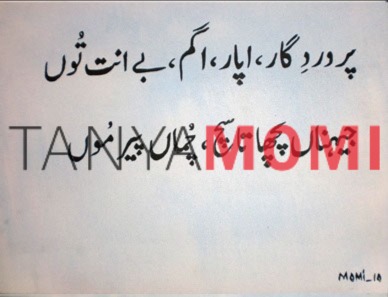 پروردِگار، اپار، اگم، بے انت تُوں
جیہناں پچھاتا سچّ، چُماں پیر مُوں
TANYAMOMI
MOMI_10